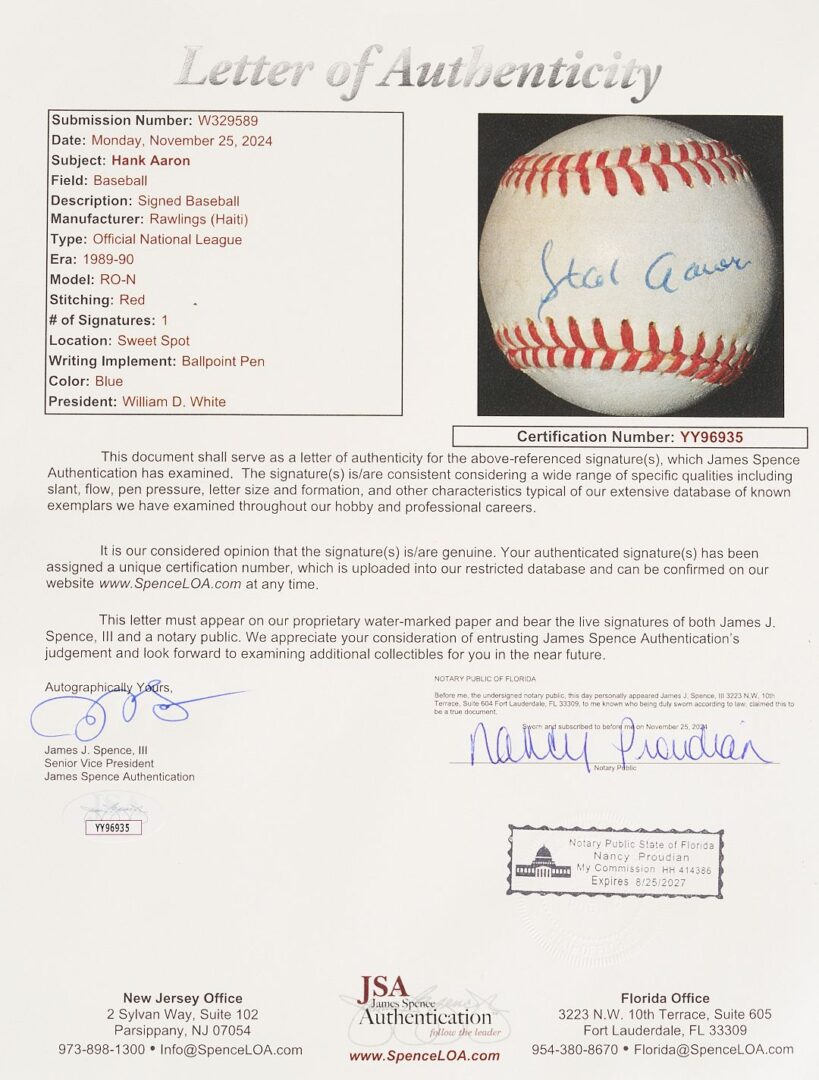 Letter of Authenticity
Submission Number: W329589
Date: Monday, November 25, 2024
Subject: Hank Aaron
Field: Baseball
Description: Signed Baseball
Manufacturer: Rawlings (Haiti)
Type: Official National League
Era: 1989-90
Model: RO-N
Stitching: Red
# of Signatures: 1
Location: Sweet Spot
Writing Implement: Ballpoint Pen
Color: Blue
President: William D. White
Aaron
Certification Number: YY96935
This document shall serve as a letter of authenticity for the above-referenced signature(s), which James Spence
Authentication has examined. The signature(s) is/are consistent considering a wide range of specific qualities including
slant, flow, pen pressure, letter size and formation, and other characteristics typical of our extensive database of known
exemplars we have examined throughout our hobby and professional careers.
It is our considered opinion that the signature(s) is/are genuine. Your authenticated signature(s) has been
assigned a unique certification number, which is uploaded into our restricted database and can be confirmed on our
website www.SpenceLOA.com at any time.
This letter must appear on our proprietary water-marked paper and bear the live signatures of both James J.
Spence, III and a notary public. We appreciate your consideration of entrusting James Spence Authentication's
judgement and look forward to examining additional collectibles for you in the near future.
Autographically Yours,
James J. Spence, III
Senior Vice President
James Spence Authentication
YY96935
NOTARY PUBLIC OF FLORIDA
Before me, the undersigned notary public, this day personally appeared James J. Spence, III 3223 N.W. 10th
Terrace, Suite 604 Fort Lauderdale, FL 33309, to me known who being duly sworn according to law, claimed this to
be a true document.
Sworn and subscribed to before me on November 25, 2024
Nancy Proudian
Notary Public
Notary Public State of Florida
Nancy Proudian
My Commission HH 414386
Expires 8/25/2027
New Jersey Office
2 Sylvan Way, Suite 102
Parsippany, NJ 07054
973-898-1300 • Info@SpenceLOA.com
JSA
James Spence
Authentication
follow the leader
www.SpenceLOA.com
Florida Office
3223 N.W. 10th Terrace, Suite 605
Fort Lauderdale, FL 33309
954-380-8670 • Florida@SpenceLOA.com